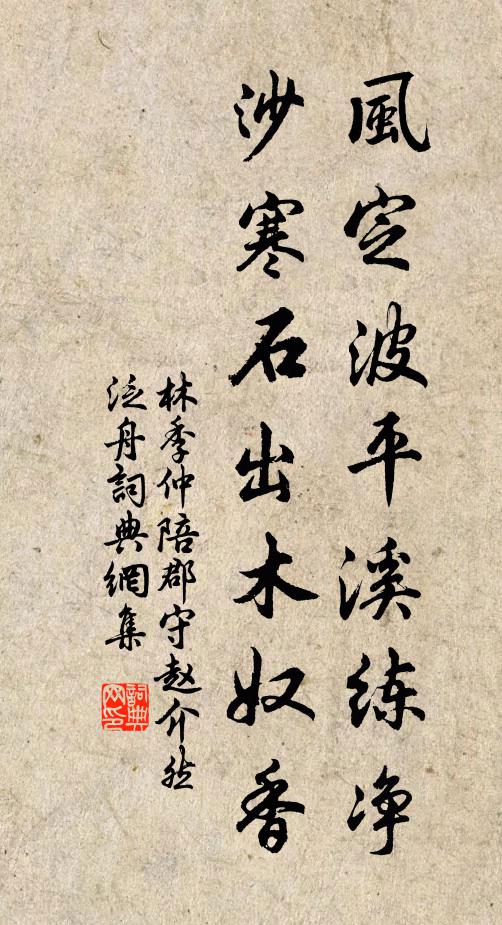 風定波平溪练净
沙寒石出木奴香
林季仲陪郡守赵介然
泛舟詞典網集
詞典网印